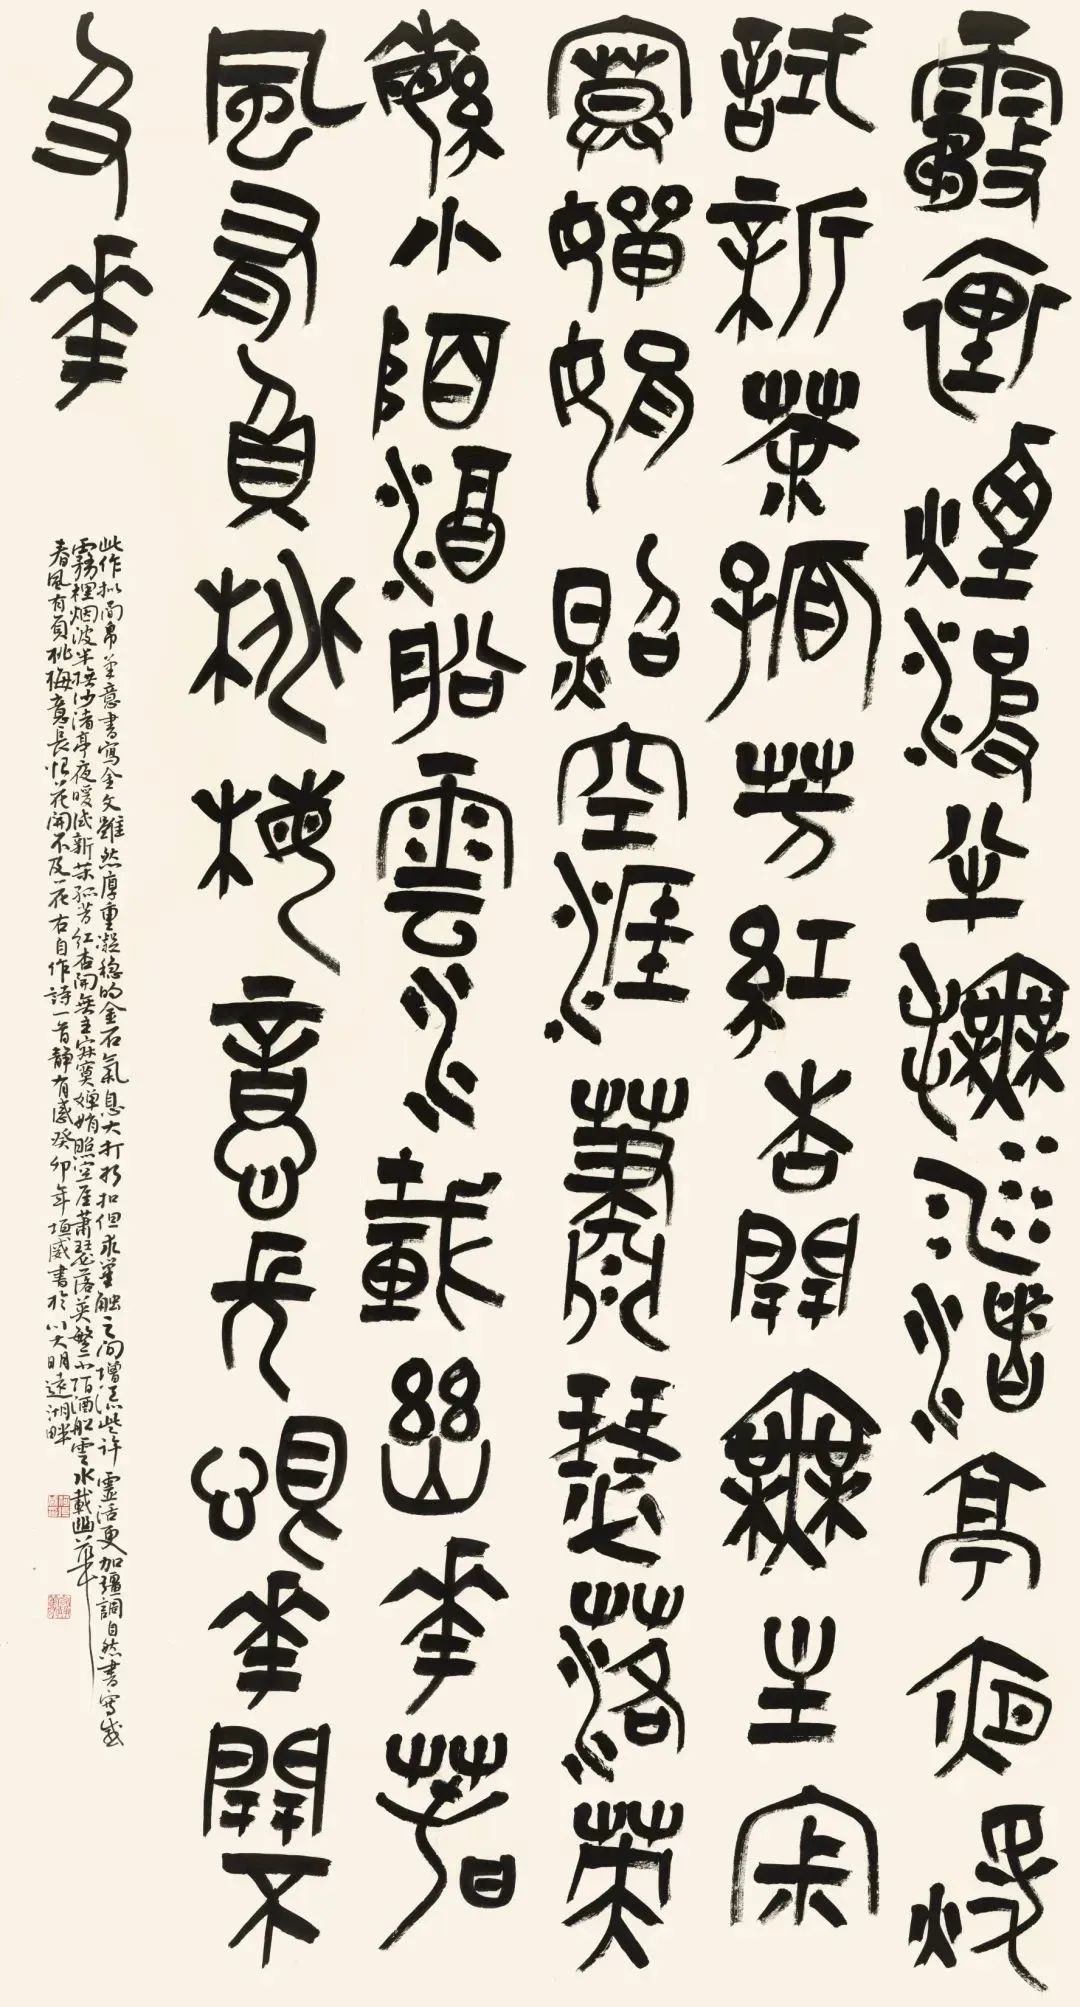 霧裡煙波半撫沙渚亭夜煖
試新茶孤芳紅杏開無主寂
寞嬋娟照空涯蕭瑟落英
繁小陌酒船雲水載幽華春
風有負桃梅意長恨華開不
及華
此作拟帛筆意書寫金文雖然厚重凝穩的金石氣息大打折扣但求筆触之间增添些许靈活更加彊調自然書寫感
霧裡烟波半撫沙渚亭夜暖试新茶孤芳红杏開無主寂寞嬋娟照空厓蕭瑟落英繁小陌酒船雲水載幽華
春風有負桃梅意長恨花開不及花右自作詩一首静有感癸卯年垣威書於川大明遠湖畔